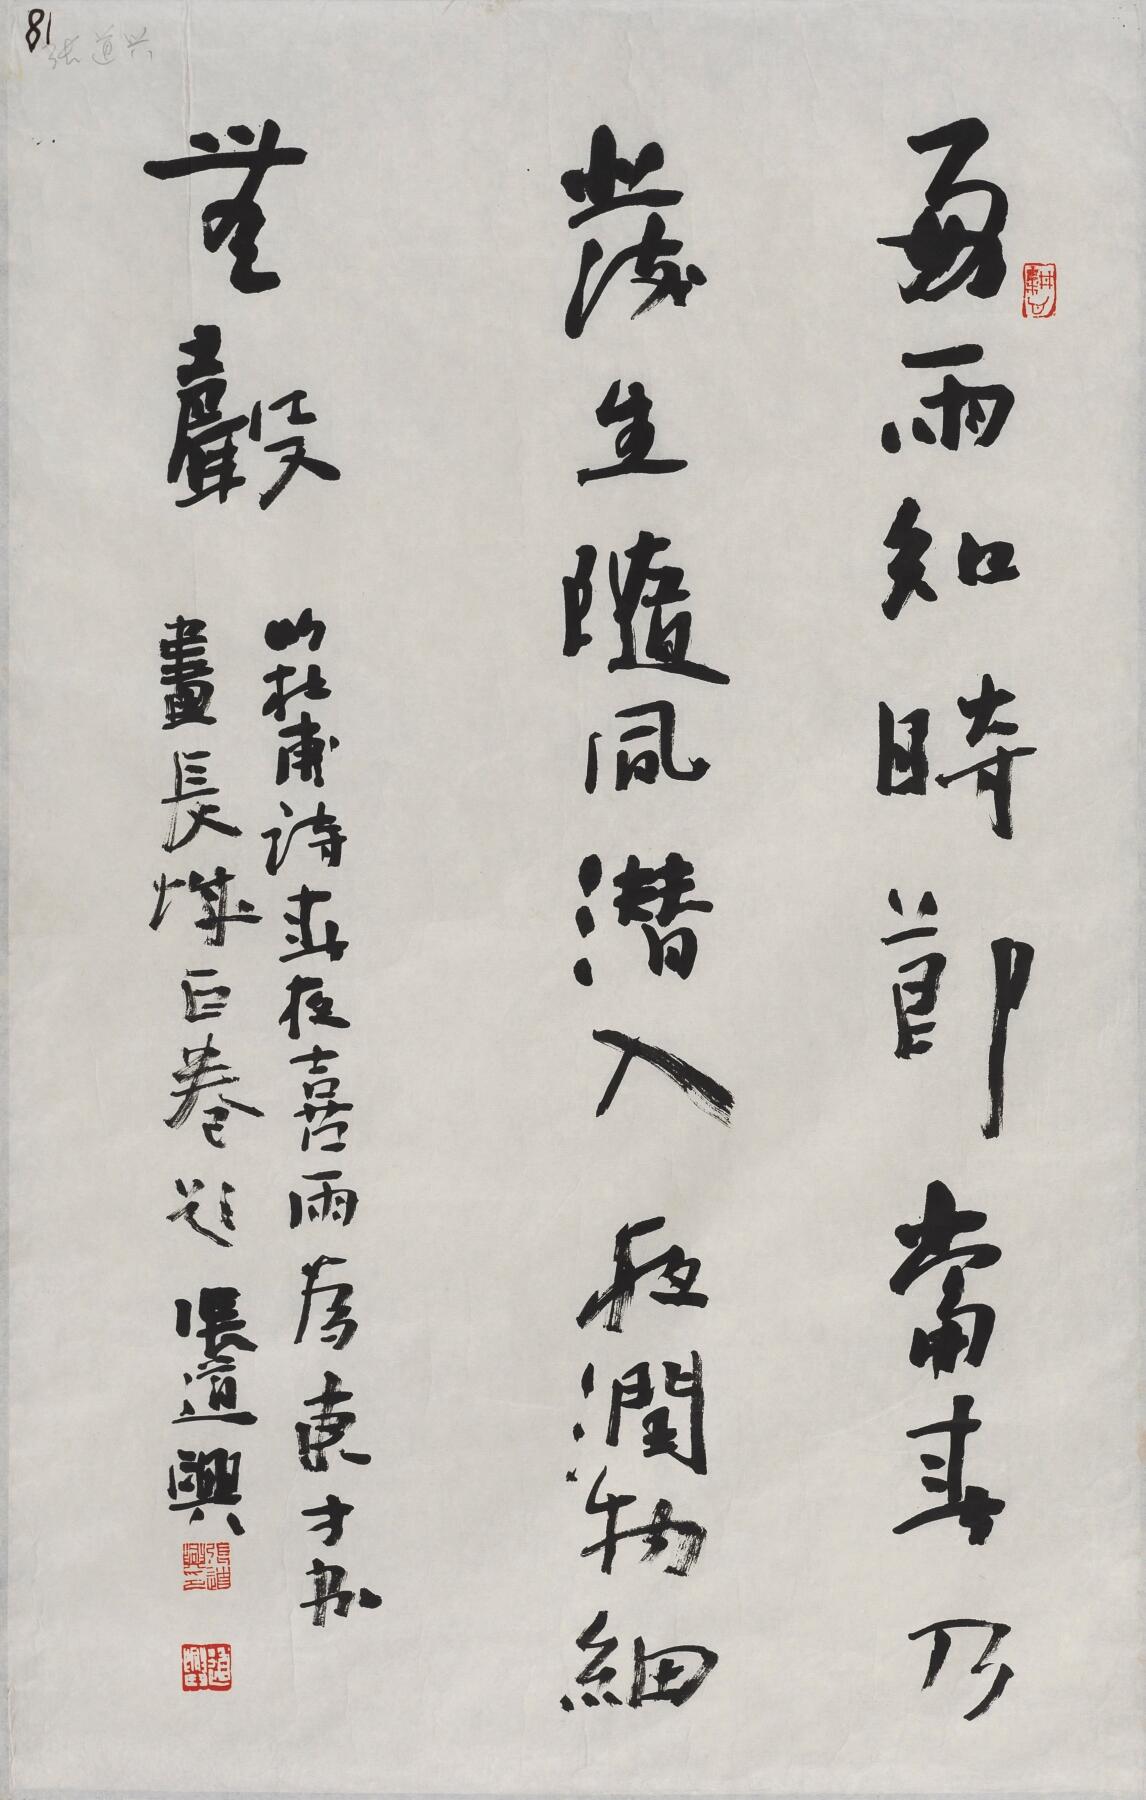 81
张道兴
好雨知時節當春乃
發生隨風潛入夜潤物細
無聲
以杜甫詩春夜喜雨為
畫長城巨卷題 張道興